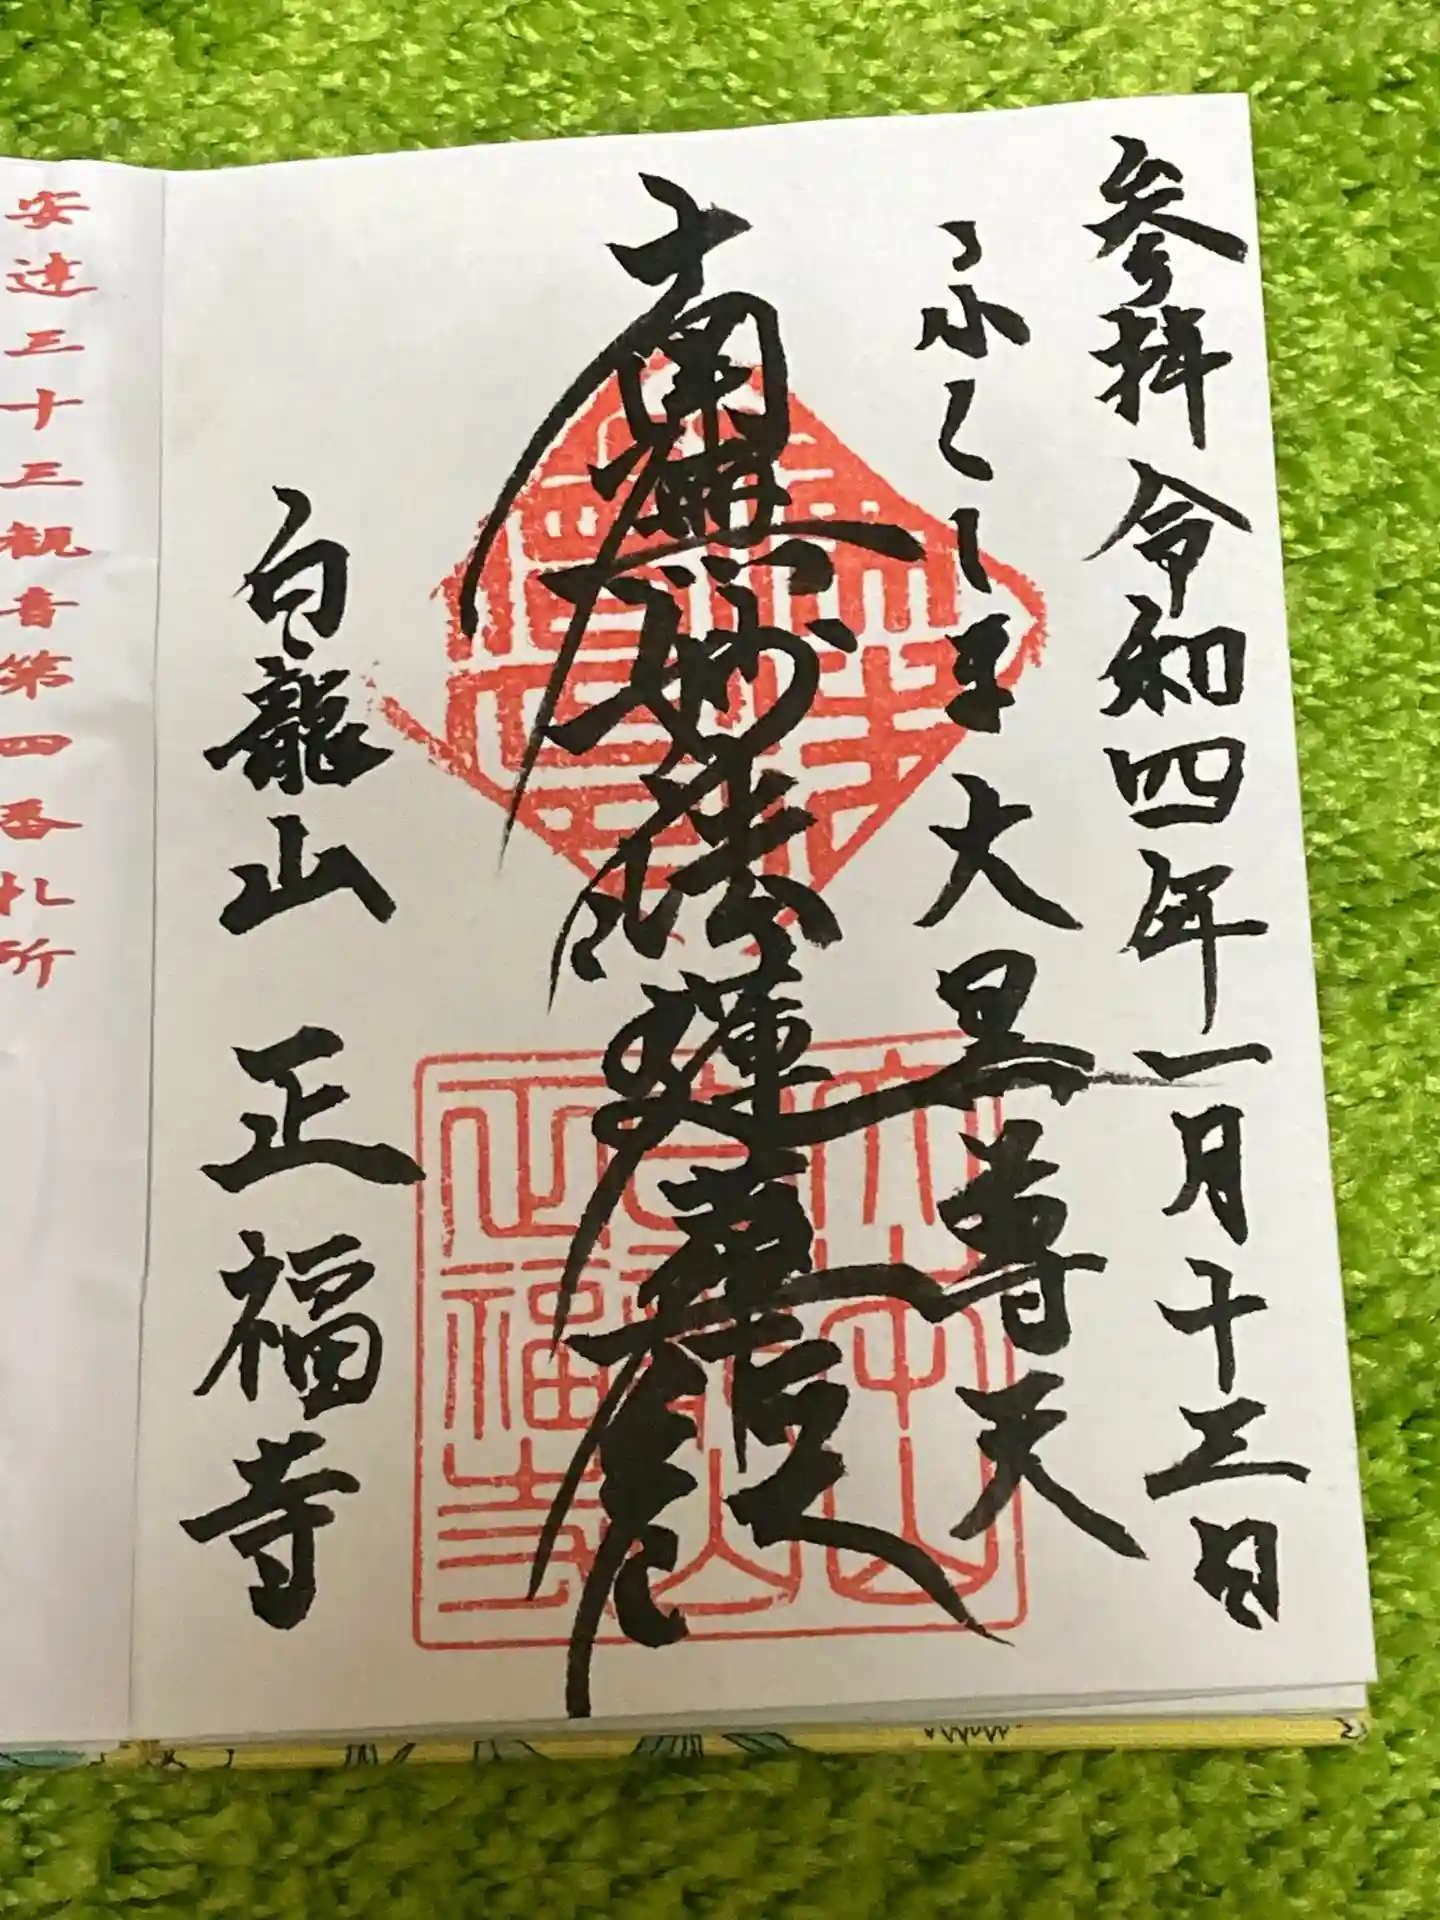 参拝 令和四年一月十三日
ふくしま大黒尊天
南無妙法蓮華経
白龍山 正福寺
安達三十三観音第四番札所
正福寺